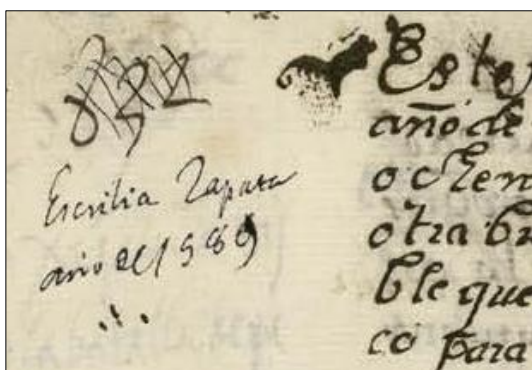 Escribia Zapata
año de 1589
Este
año de
ochen
otra br
ble que
co para